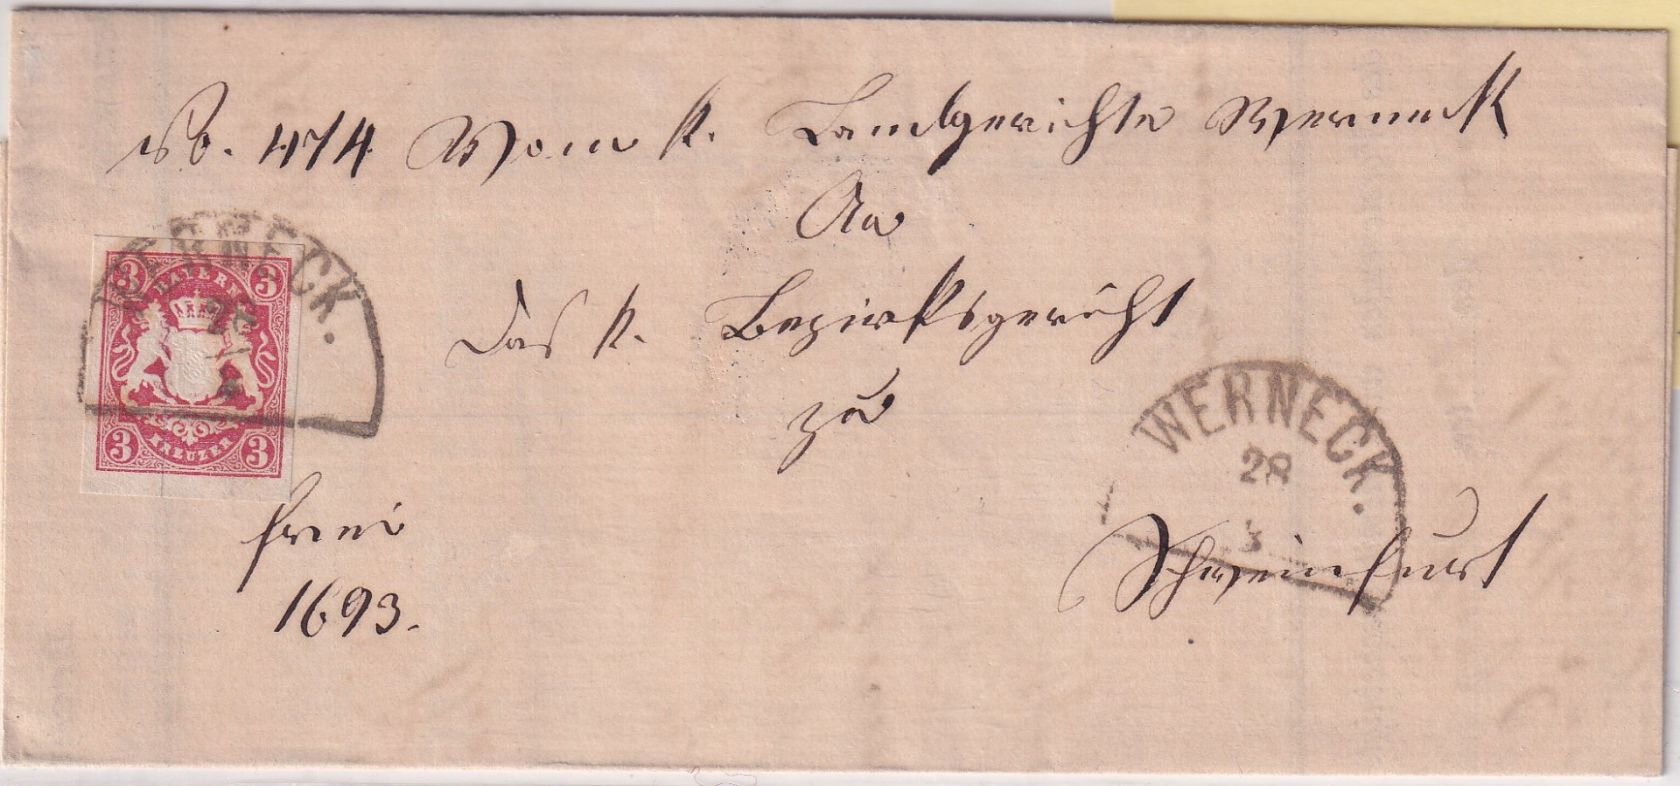 No. 474 Vom k. Landgerichte Werneck
An
das k. Bezirksgericht
zu
Schweinfurt
frei
1693.
WERNECK.
3 3
BAYERN
3 KREUZER 3
WERNECK.
28
3